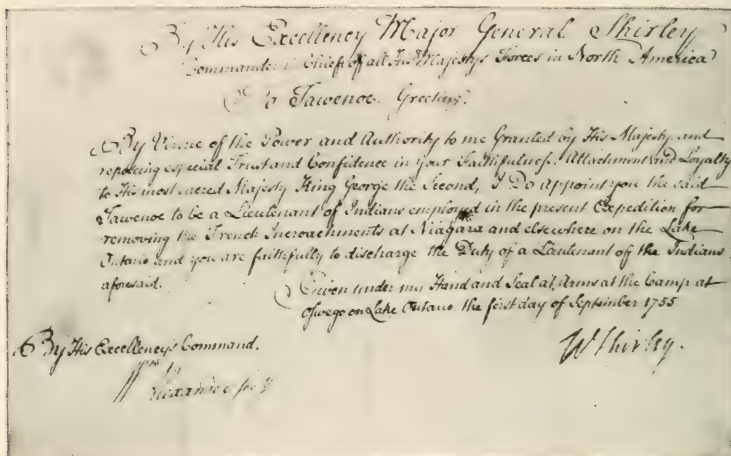 By His Excellency Major General Shirley
Commander in Chief of all His Majestys Forces in North America
To Tawenoe Greeting.
By Virtue of the Power and Authority to me Granted by His Majesty and
reposing especial Trust and Confidence in your Faithfulness, Attachment and Loyalty
to His most sacred Majesty King George the Second, I Do appoint you the said
Tawenoe to be a Lieutenant of Indians employed in the present Expedition for
removing the French Incroachments at Niagara and elsewhere on the Lake
Ontario and you are faithfully to discharge the Duty of a Lieutenant of the Indians
aforesaid.
Given under my Hand and Seal at Arms at the Camp at
Oswego on Lake Ontario the first day of September 1755
By His Excellency's Command.
W Shirley.